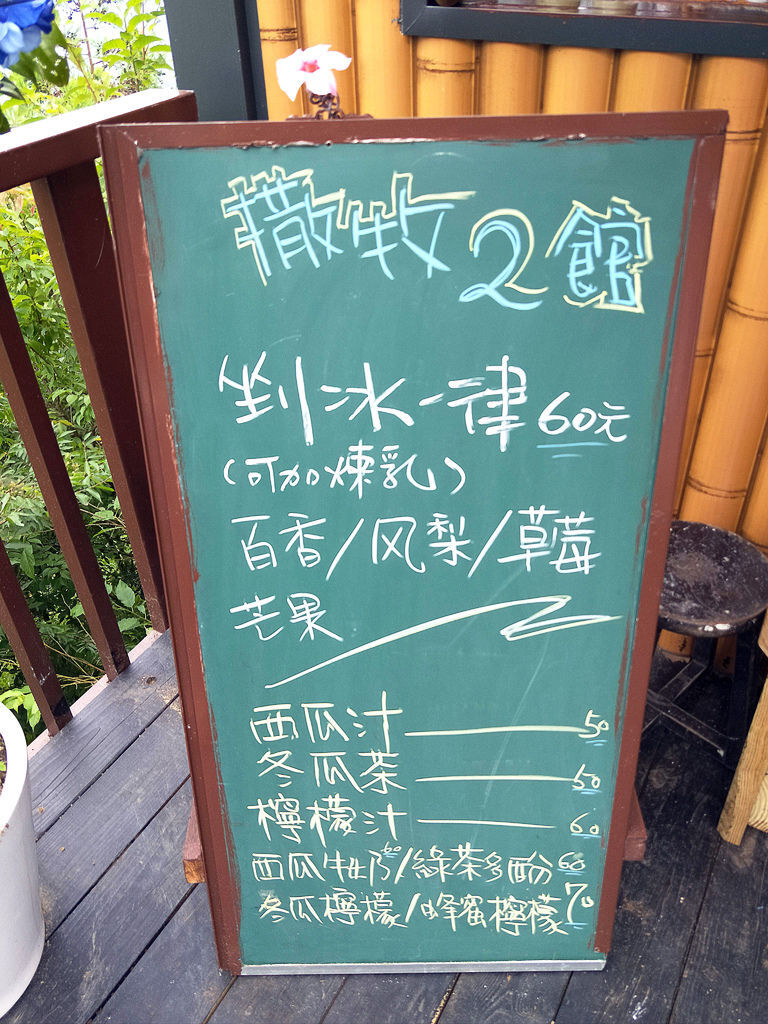 撒牧2館
剉冰一律60元
(可加煉乳)
百香/风梨/草莓
芒果
西瓜汁 50
冬瓜茶 50
檸檬汁 60
西瓜牛奶60/綠茶多酚60
冬瓜檸檬/蜂蜜檸檬70